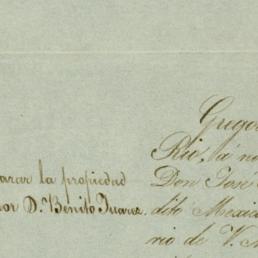 arar la propiedad
or D. Benito Juarez.
Grego
Rio, á no
Don José
dito Mexic
rio de V.